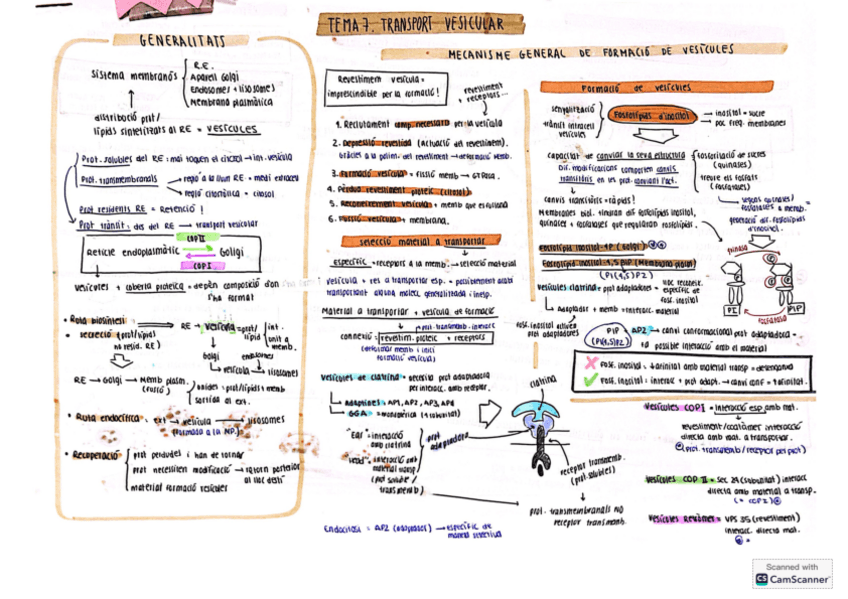 TEMA 7. TRANSPORT VESICULAR
GENERALITATS
Sistema membranós
R.E.
Aparell Golgi
Endosomes + lisosomes
Membrana plasmàtica
distribució prot/
lípids sintetitzats al RE = VESÍCULES
Prot. solubles del RE: mai toquen el citosol → int. vesícula
Prot. transmembranals → regió a la llum RE = medi extracel
→ regió citosòlica = citosol
Prot residents RE = Retenció!
Prot trànsit: des del RE → transport vesicular
COP II
Reticle endoplasmàtic Golgi
COP I
vesícules + coberta proteica = depèn composició d'on
s'ha format
• Ruta biosíntesi
• secreció (prot/lípids
no resid. RE)
RE → vesícula = prot/lípid
int.
unit a
memb.
Golgi endosomes
vesícula → lisosomes
RE → Golgi → Memb plasm.
(fusió)
sortida al ext.
• Ruta endocítica = ext → vesícula → lisosomes
(formada a la MP)
• Recuperació
prot perdudes i han de tornar
prot necessiten modificació → tornen
al lloc destí
material formació vesícules
MECANISME GENERAL DE FORMACIÓ DE VESÍCULES
Revestiment vesícula =
imprescindible per la formació!
revestiment
+ receptors...
1. Reclutament comp. necessaris per la vesícula
2. Depressió revestida (actuació del revestiment).
Gràcies a la polim. del revestiment → deformació memb.
3. Formació vesícula = fissió memb → GTPasa.
4. Pèrdua revestiment proteic (citosol)
5. Reconeixement vesícula + memb que es fusiona
6. Fusió vesícula + membrana.
Selecció material a transportar
Específic = receptors a la memb → selecció material
Vesícula + res a transportar esp. = possiblement acabi
transportant alguna molec. generalitzada i inesp.
Material a transportar + vesícula de formació
prot. transmemb
connexió = revestim. proteic + receptors
(deformar memb i inici
formació vesícula)
Vesícules de clatrina = necessita prot adaptadora
per interacc. amb receptor.
→ Adaptines = AP1, AP2, AP3, AP4
→ GGA = monomèrica (1 subunitat)
"Ear" = interacció
amb clatrina
"Head" = interacció amb
material transp
(prot soluble /
transmemb)
prot
adaptadora
clatrina
receptor transmemb.
(prot. solubles)
prot. transmembranals no
receptor transmemb.
Endocitosi = AP2 (adaptador) → específic de
manera selectiva
Formació de vesícules
senyalització
trànsit intracel
vesícules
Fosfolípids d'inositol
→ inositol = sucre
→ poc freq. membranes
capacitat de canviar la seva estructura
fosforilació de sucres
(quinases)
treure els fosfats
(fosfatases)
Dif. modificacions comporten canvis
transitoris en les prot. canviant l'act.
canvis transitoris = ràpids!
Membranes biol. tindran dif fosfolípids inositol,
quinases + fosfatases que regularan fosfolípids.
segons quinases/
fosfatases a memb. =
generació dif. fosfolípids
d'inositol.
Fosfolípid inositol-4P (Golgi)
Fosfolípid inositol-4,5 BIP (Membrana plasm)
(PI(4,5)P2)
vesícules clatrina = prot adaptadores =
lloc reconeix.
específic de
fosf. inositol
Adaptador + memb → interacc. material
fosf. inositol activen
prot adaptadores
PIP + AP2 → canvi conformacional prot adaptadora =
(PI(4,5)P2)
possible interacció amb el material
quinasa
fosfatasa
PI
PIP
fosf. inositol = ↓afinitat amb material transp = desenganxa
fosf. inositol + interacc + prot adapt. → canvi conf → ↑afinitat.
Vesícules COPI = interacció esp. amb mat.
revestiment/coatòmer interacció
directa amb mat. a transportar.
(prot. transmemb/receptor per prot)
Vesícules COP II = Sec 24 (subunitat) interacc
directa amb material a transp.
(= COPI)
Vesícules Retròmer = VPS 35 (revestiment)
interacc. directa mat.
Scanned with
CS CamScanner